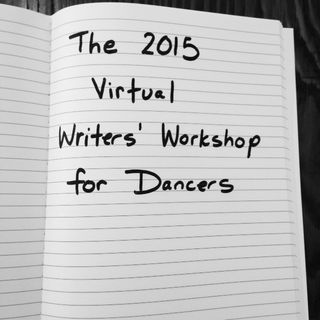 The 2015
Virtual
Writers' Workshop
for Dancers